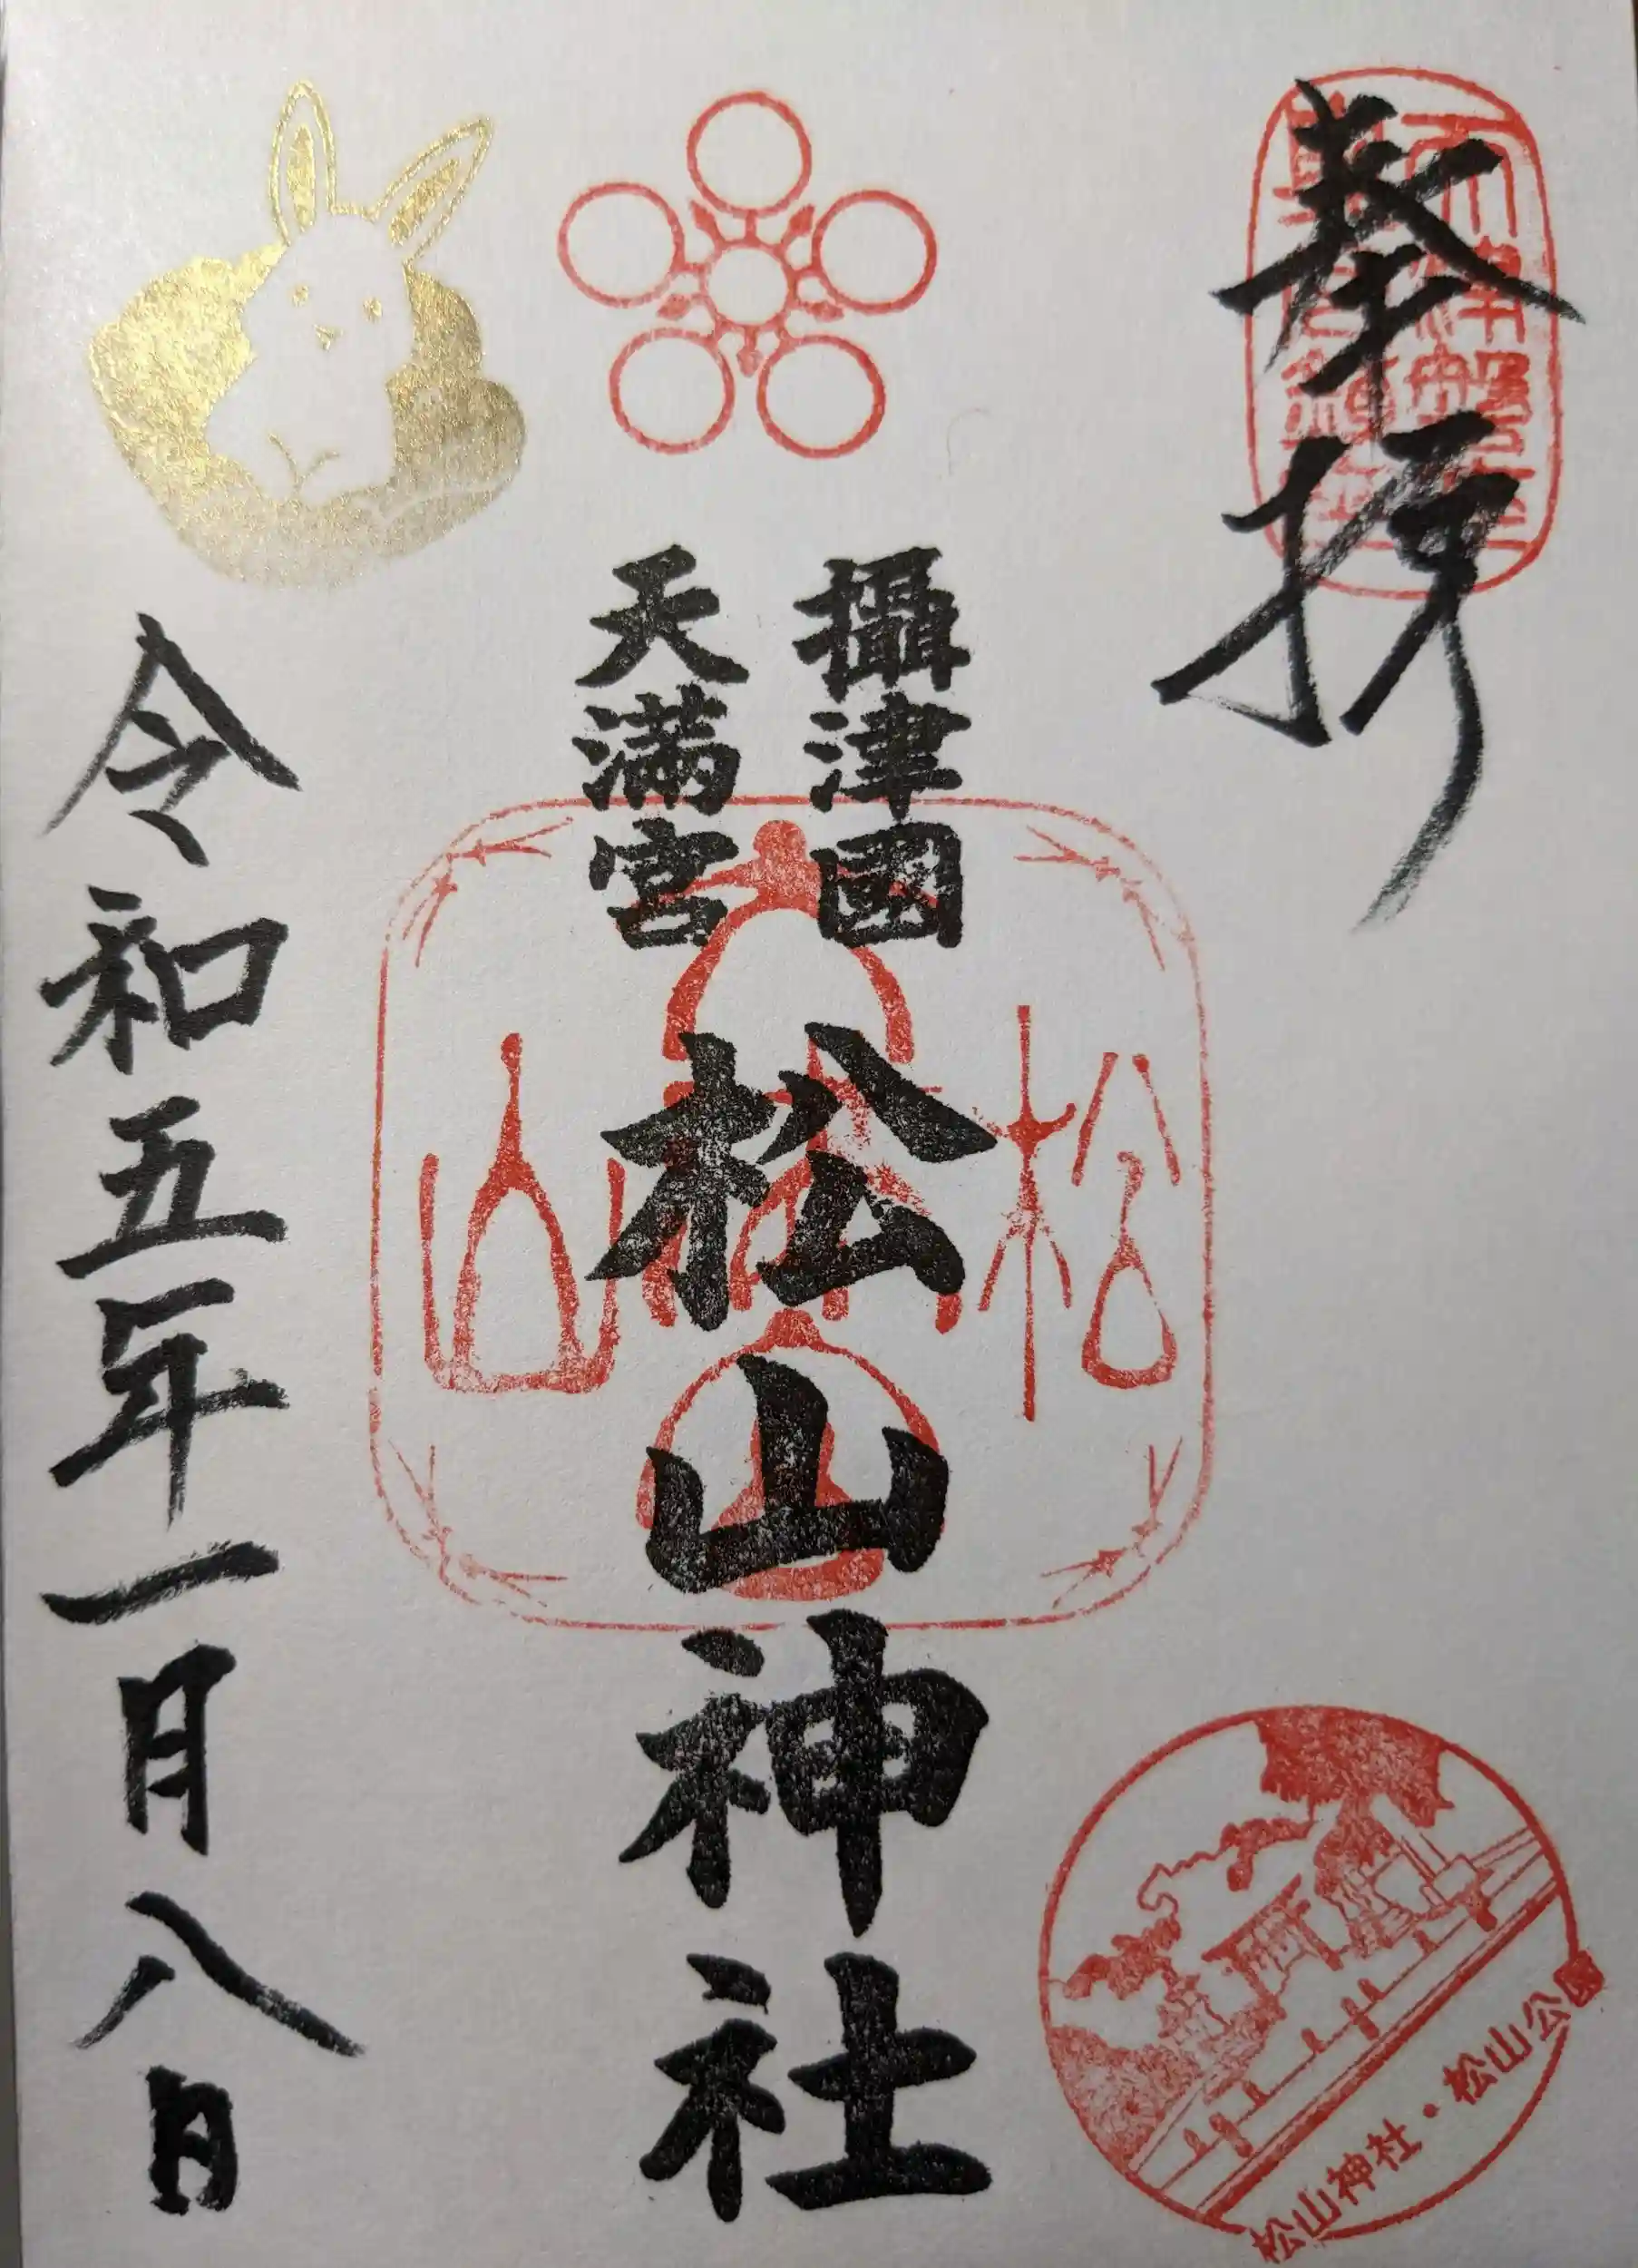 奉拝
攝津國
天満宮
松山神社
松山
令和五年一月八日
松山神社・松山公園